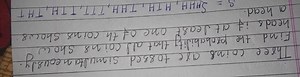 Three coins are tossed simultaneously.
Find the probability that all coins show
heads if at least one of th coins shows
a head.
S = { HHH, HHT, HTH, THH, TTT, TTH, THT